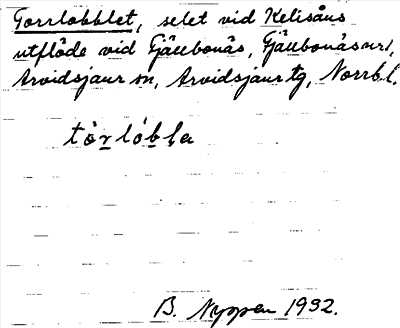 Torrlobblet, selet vid Kelisåns
utflöde vid Fjällbonäs, Fjällbonäsur,
Arvidsjaur sn, Arvidsjaur tg, Norrb. l.
tòrlóbla
B. Nyppen 1932.